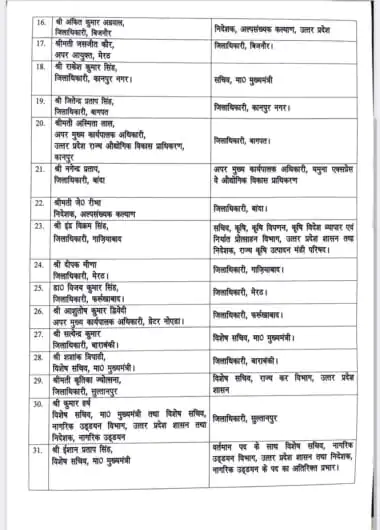 16. श्री अंकित कुमार अग्रवाल,
जिलाधिकारी, बिजनौर
निदेशक, अल्पसंख्यक कल्याण, उत्तर प्रदेश
17. श्रीमती जसजीत कौर,
अपर आयुक्त, मेरठ
जिलाधिकारी, बिजनौर।
18. श्री राकेश कुमार सिंह,
जिलाधिकारी, कानपुर नगर।
सचिव, मा0 मुख्यमंत्री
19. श्री जितेन्द्र प्रताप सिंह,
जिलाधिकारी, बागपत
जिलाधिकारी, कानपुर नगर।
20. श्रीमती अस्मिता लाल,
अपर मुख्य कार्यपालक अधिकारी,
उत्तर प्रदेश राज्य औद्योगिक विकास प्राधिकरण,
कानपुर
जिलाधिकारी, बागपत।
21. श्री नगेन्द्र प्रताप,
जिलाधिकारी, बांदा
अपर मुख्य कार्यपालक अधिकारी, यमुना एक्सप्रेस
वे औद्योगिक विकास प्राधिकरण
22. श्रीमती जे0 रीभा
निदेशक, अल्पसंख्यक कल्याण
जिलाधिकारी, बांदा।
23. श्री इंद्र विक्रम सिंह,
जिलाधिकारी, गाज़ियाबाद
सचिव, कृषि, कृषि विपणन, कृषि विदेश व्यापार एवं
निर्यात प्रोत्साहन विभाग, उत्तर प्रदेश शासन तथा
निदेशक, राज्य कृषि उत्पादन मंडी परिषद।
24. श्री दीपक मीणा
जिलाधिकारी, मेरठ।
जिलाधिकारी, गाज़ियाबाद।
25. डा0 विजय कुमार सिंह,
जिलाधिकारी, फर्रुखाबाद।
जिलाधिकारी, मेरठ।
26. श्री आशुतोष कुमार द्विवेदी
अपर मुख्य कार्यपालक अधिकारी, ग्रेटर नोएडा।
जिलाधिकारी, फर्रुखाबाद।
27. श्री सत्येन्द्र कुमार
जिलाधिकारी, बाराबंकी।
विशेष सचिव, मा0 मुख्यमंत्री।
28. श्री शशांक त्रिपाठी,
विशेष सचिव, मा0 मुख्यमंत्री।
जिलाधिकारी, बाराबंकी।
29. श्रीमती कृतिका ज्योत्सना,
जिलाधिकारी, सुल्तानपुर
विशेष सचिव, राज्य कर विभाग, उत्तर प्रदेश
शासन
30. श्री कुमार हर्ष
विशेष सचिव, मा0 मुख्यमंत्री तथा विशेष सचिव,
नागरिक उड्डयन विभाग, उत्तर प्रदेश शासन तथा
निदेशक, नागरिक उड्डयन
जिलाधिकारी, सुल्तानपुर
31. श्री ईशान प्रताप सिंह,
विशेष सचिव, मा0 मुख्यमंत्री
वर्तमान पद के साथ विशेष सचिव, नागरिक
उड्डयन विभाग, उत्तर प्रदेश शासन तथा निदेशक,
नागरिक उड्डयन के पद का अतिरिक्त प्रभार।